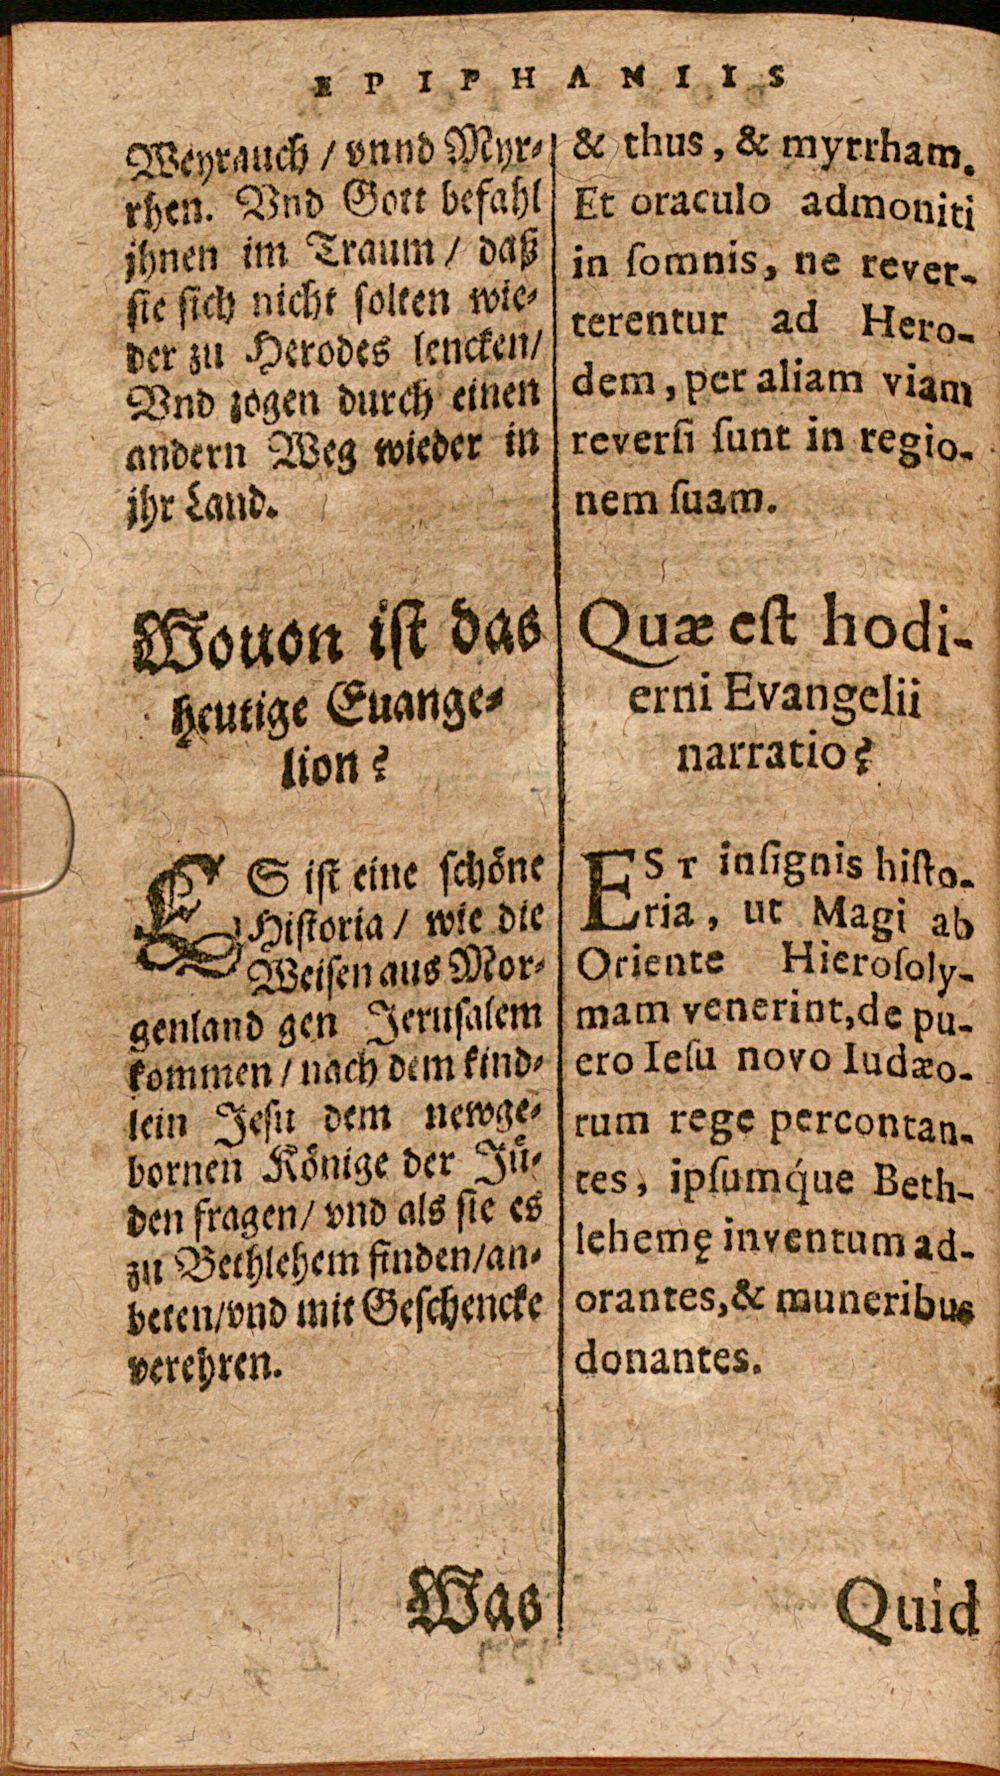 EPIPHANIIS
Weyrauch / vnnd Myr⸗
rhen. Vnd Gott befahl
jhnen im Traum / daß
sie sich nicht solten wie⸗
der zu Herodes lencken/
Vnd zogen durch einen
andern Weg wieder in
jhr Land.
Wouon ist das
heutige Euange⸗
lion?
ES ist eine schöne
Historia / wie die
Weisen aus Mor⸗
genland gen Jerusalem
kommen / nach dem kind⸗
lein Jesu dem newge⸗
bornen Könige der Jü⸗
den fragen/ vnd als sie es
zu Bethlehem finden/an⸗
beten/vnd mit Geschencke
verehren.
Was
& thus, & myrrham.
Et oraculo admoniti
in ſomnis, ne rever-
terentur ad Hero-
dem, per aliam viam
reverſi ſunt in regio-
nem ſuam.
Quæ eſt hodi-
erni Evangelii
narratio?
EST inſignis hiſto-
ria, ut Magi ab
Oriente Hieroſoly-
mam venerint, de pu-
ero Ieſu novo Iudæo-
rum rege percontan-
tes, ipſumq́ue Beth-
lehemę inventum ad-
orantes, & muneribus
donantes.
Quid